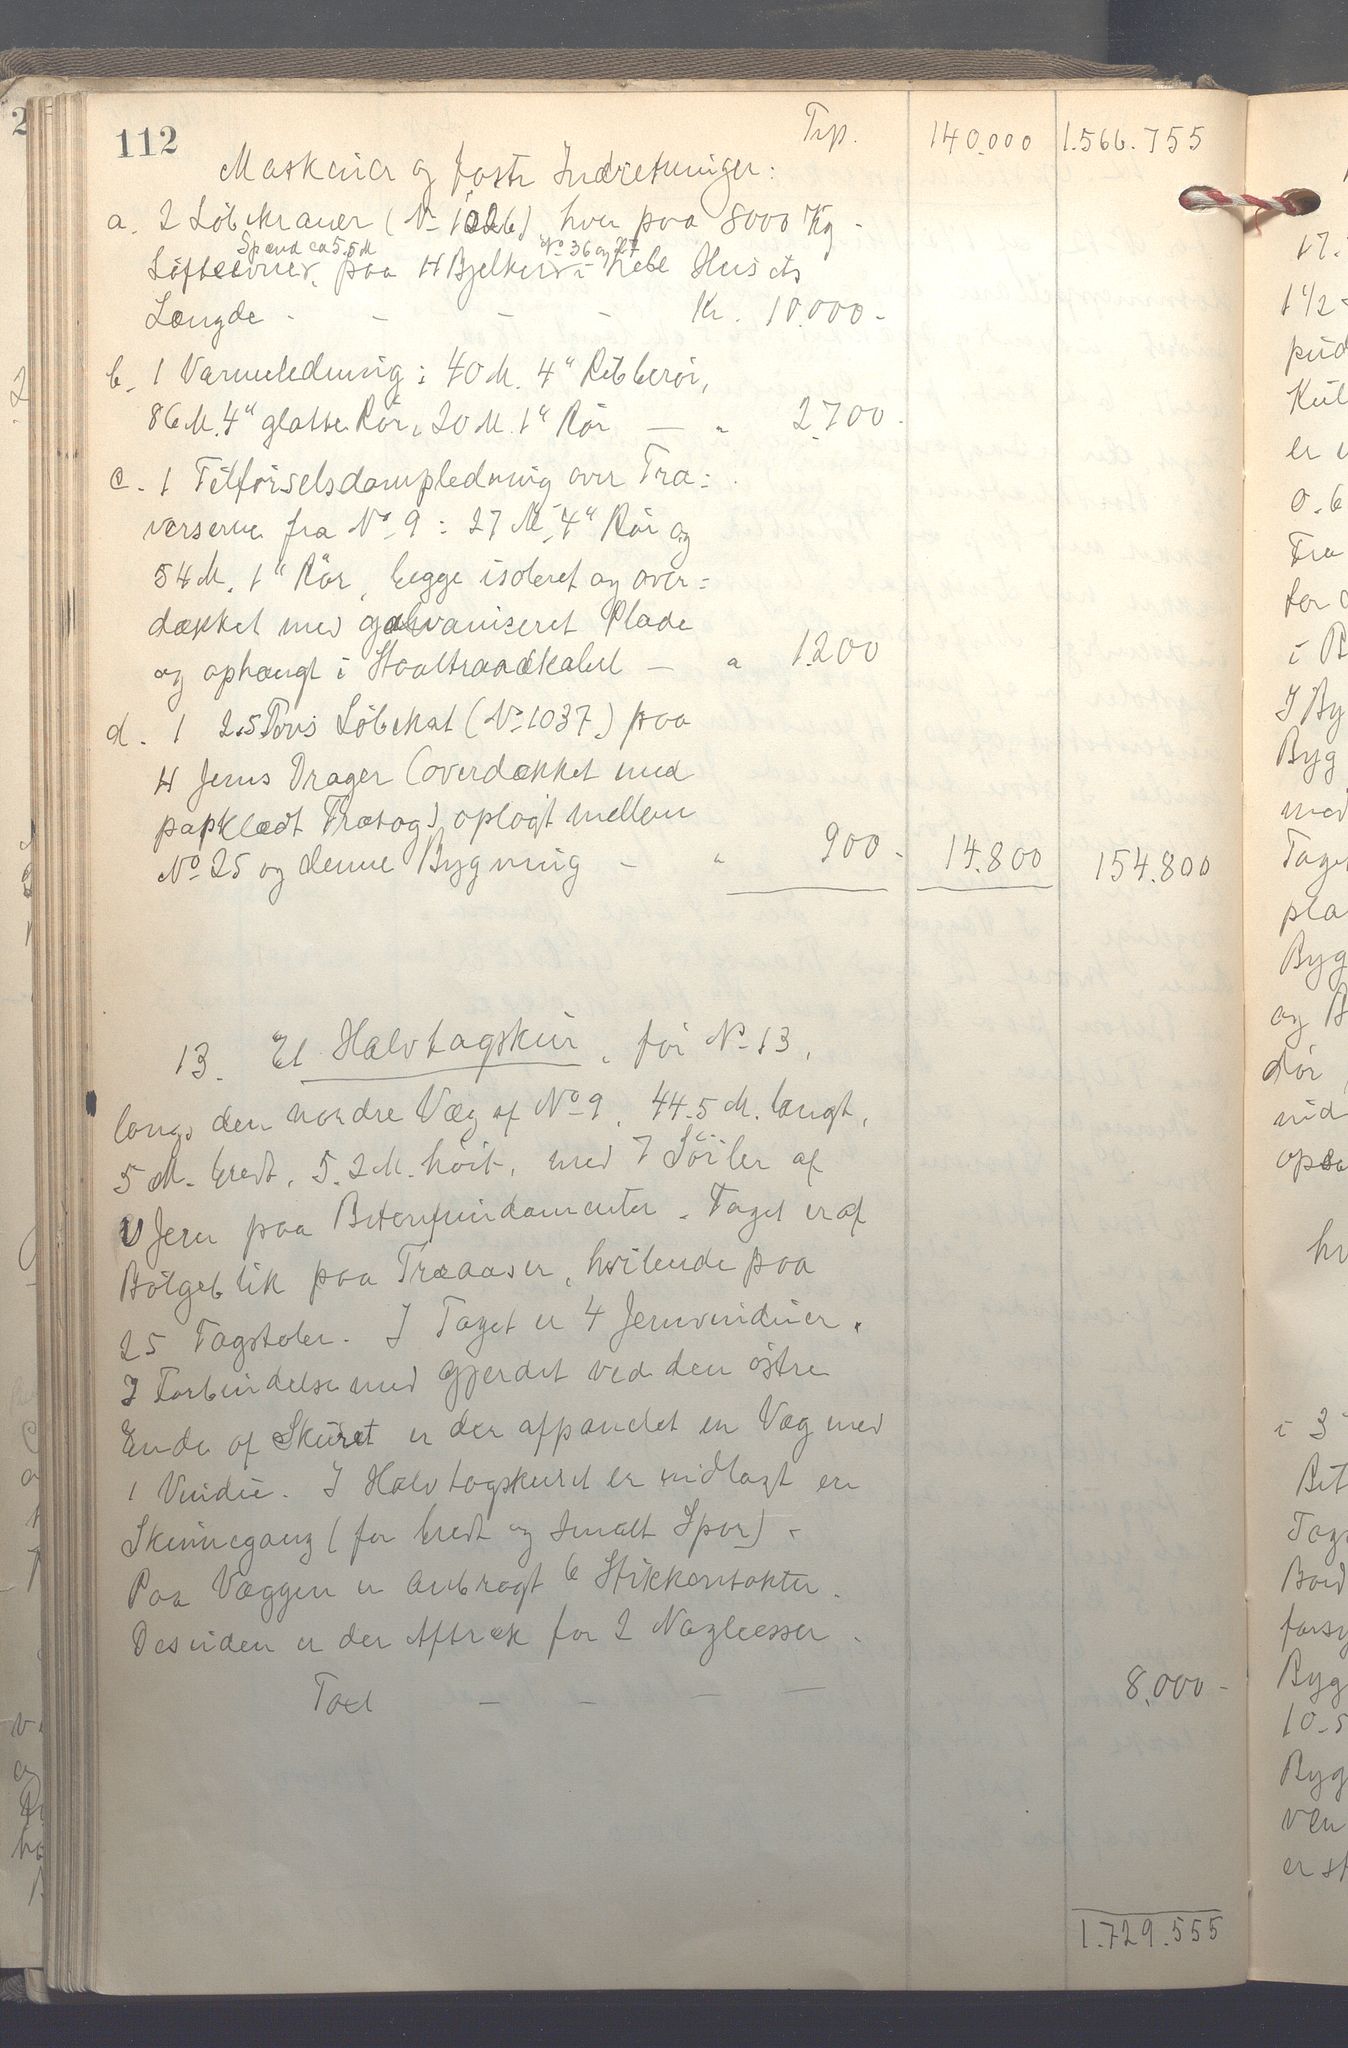 112
Trp. 140.000 1.566.755
Maskiner og faste Indretninger:
a. 2 Löbekraner (No 1026) hver paa 8000 Kg.
Spænd ca 5.5 M No 36 og 37
Löfteevne, paa 4 Bjelker i hele Husets
Længde - - - - Kr. 10.000-
b. 1 Varmeledning: 40 M. 4" Ribberör,
86 M. 4" glatte Rör, 20 M. 1" Rör — " 2.700.
c. 1 Tilförselsdampledning over Tra=
verserne fra No 9: 27 M. 4" Rör og
54 M. 1" Rör, begge isoleret og over=
dækket med galvaniseret Plade
og ophængt i Staaltraadkabel — " 1.200
d. 1 2.5 Tons Löbekat (No 1037) paa
H Jerns Drager (overdækket med
papklædt Trætag) oplagt mellem
No 25 og denne Bygning - " 900- 14.800 154.800
13. Et Halvtagskur, för No 13,
langs den nordre Væg af No 9, 44.5 M. langt,
5 M. bredt, 5.2 M. höit, med 7 Söiler af
U Jern paa Betonfundamenter. Taget er af
Bölgeblik paa Træaaser, hvilende paa
25 Tagstoler. I Taget er 4 Jernvinduer.
I Forbindelse med Gjerdet ved den östre
Ende af Skuret er der afpanelet en Væg med
1 Vindu. I Halvtagskuret er nidlagt en
Skinnegang (for bredt og smalt Spor).
Paa Væggen er anbragt 6 Stikkontakter.
Desuden er der Aftræk for 2 Naglеesser.
Taxt - - - — 8.000-
1.729.555